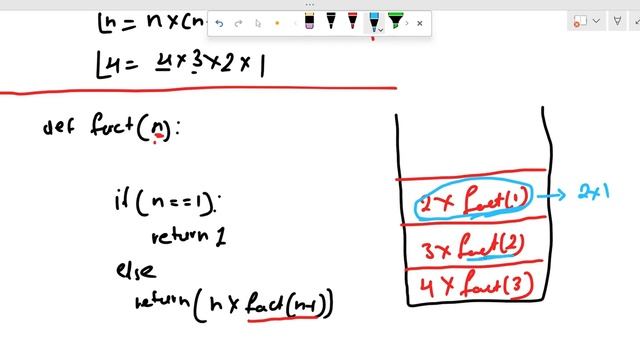 ⌊n = n × (n-
⌊4 = 4 × 3 × 2 × 1
def fact(n):
if (n==1):
return 1
else
return (n × fact(n-1))
2 × fact(1) → 2×1
3 × fact(2)
4 × fact(3)